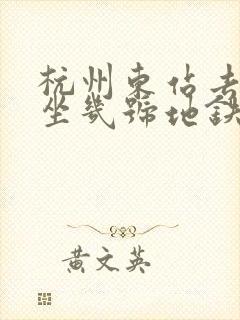 杭州东站去
坐几号地铁
黄文英